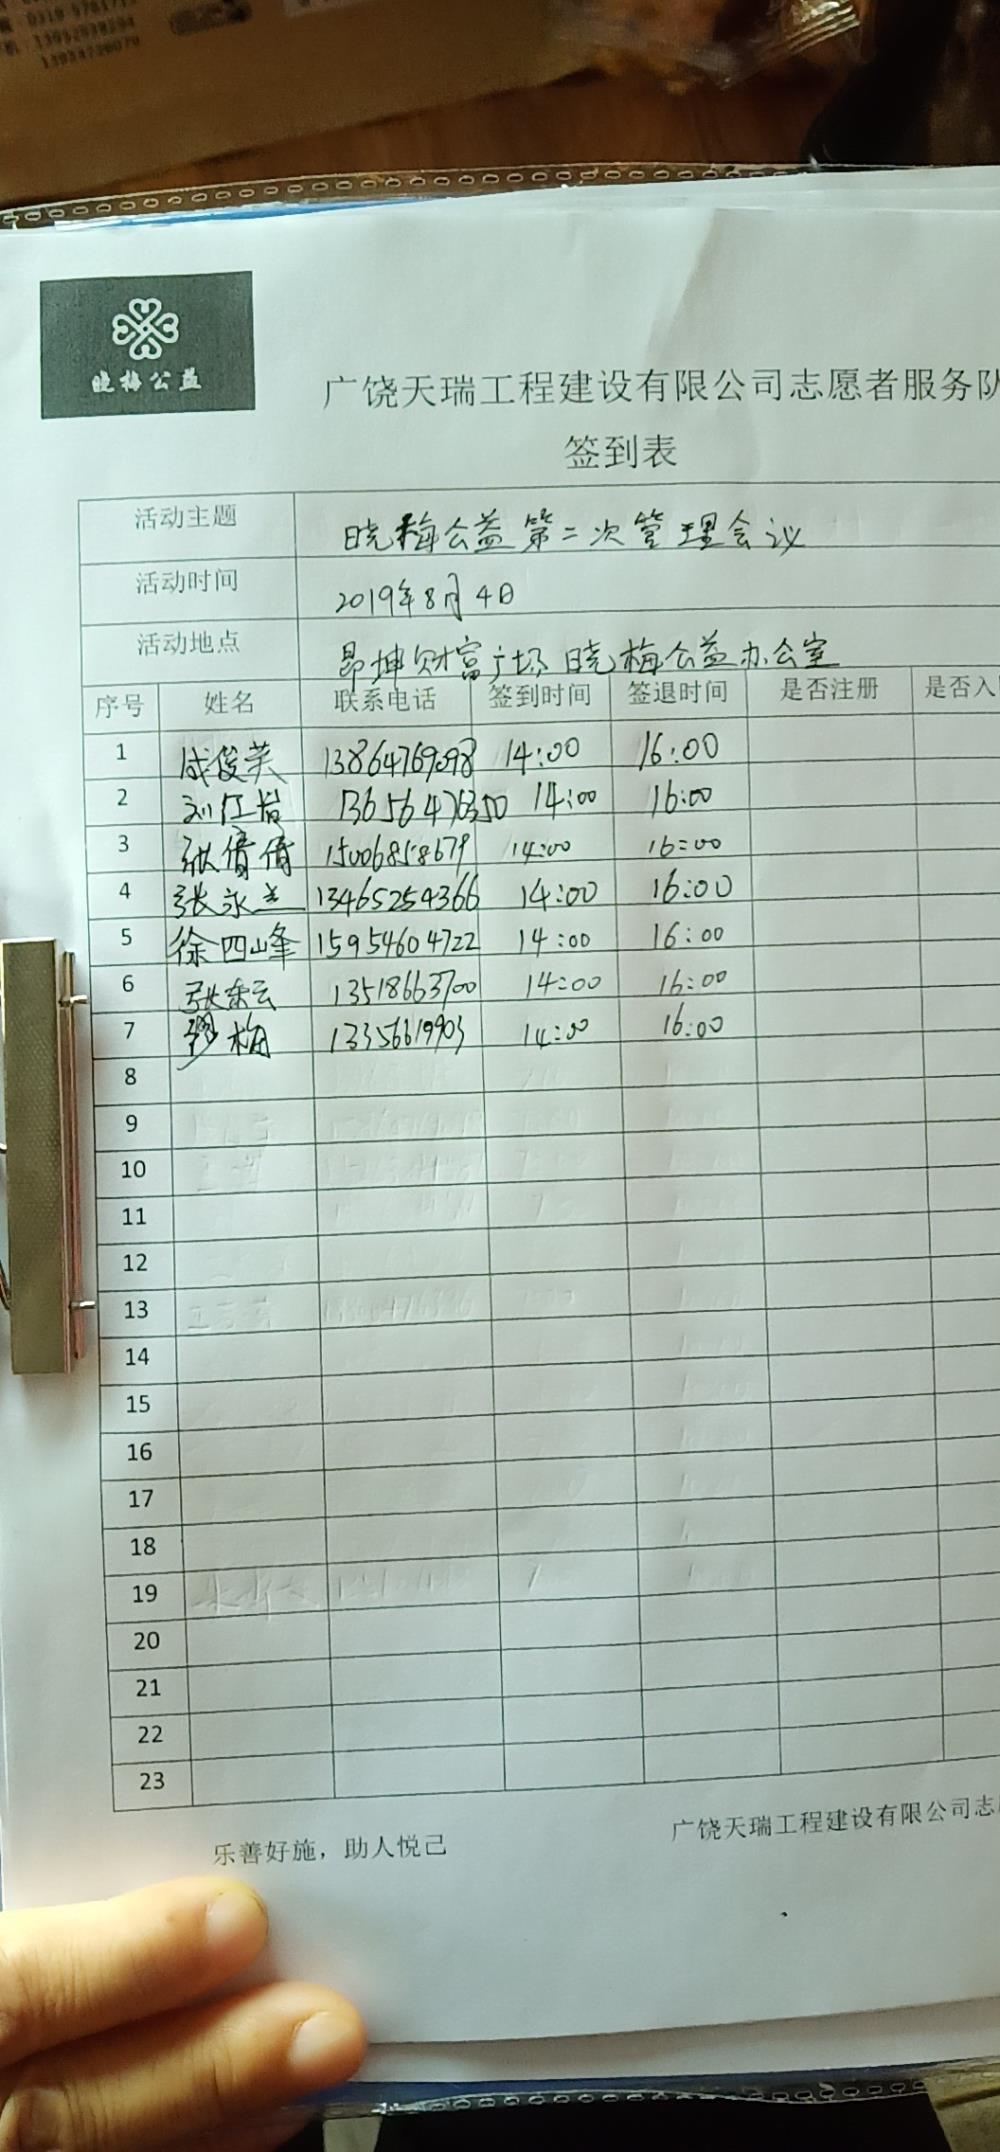 晓梅公益
广饶天瑞工程建设有限公司志愿者服务队
签到表
活动主题 晓梅公益第二次管理会议
活动时间 2019年8月4日
活动地点 昂坤财富广场晓梅公益办公室
序号 姓名 联系电话 签到时间 签退时间 是否注册 是否入
1 成俊英 13864769098 14:00 16:00
2 刘红岩 13656476350 14:00 16:00
3 张倩倩 15006858679 14:00 16:00
4 张永兰 13465254366 14:00 16:00
5 徐四峰 15954604722 14:00 16:00
6 张 13518663700 14:00 16:00
7 梅 13356619903 14:00 16:00
8
9
10
11
12
13
14
15
16
17
18
19
20
21
22
23
乐善好施，助人悦己
广饶天瑞工程建设有限公司志